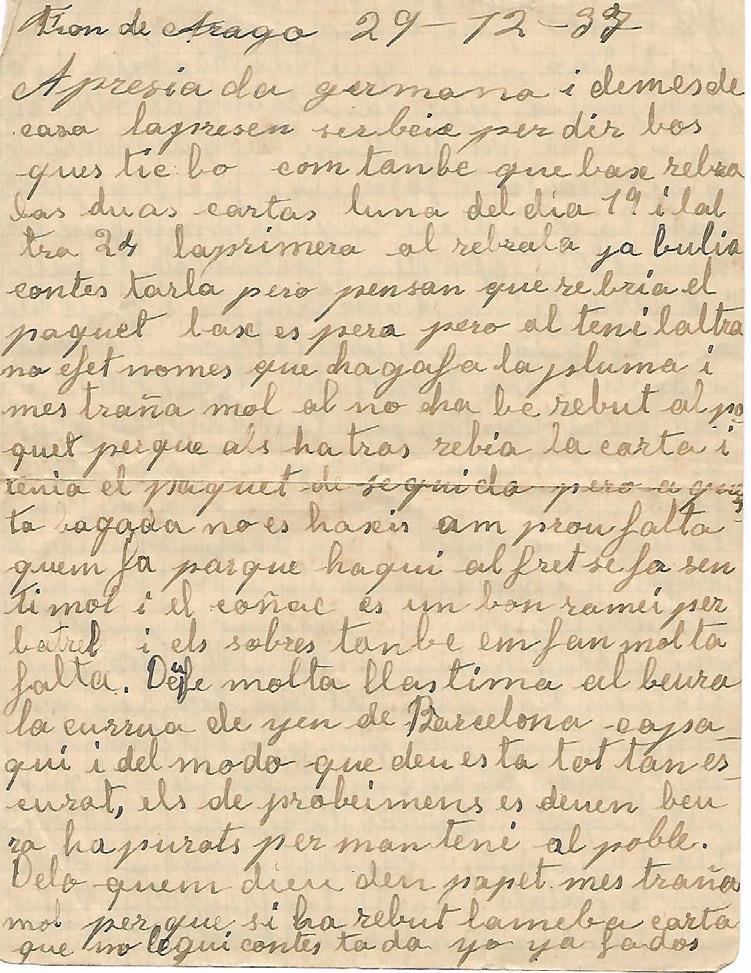 Fron de Arago 29-12-37
Apresiada germana i demes de
casa lapresen serbeix per dir bos
ques tic bo com tanbe que bax rebra
las duas cartas luna del dia 19 i lal
tra 24 laprimera al rebrala ja bulia
contes tarla pero pensan que rebria el
paquet bax es pera pero al teni laltra
no efet nomes que hagafa la pluma i
mes traña mol al no ha be rebut al pa
quet perque als hatras rebia la carta i
tenia el paquet de seguida pero aques
ta bagada no es haxis am prou falta
quem fa parque haqui al fret se fa sen
ti mol i el coñac es un bon ramei per
batrel i els sobres tanbe em fan molta
falta. Defe molta llastima al beura
la currua de yen de Barcelona capa
qui i del modo que deu esta tot tan es
curat, els de probeimens es deuen beu
ra hapurats per manteni al poble.
Delo quem dieu den papet mes traña
mol per que si ha rebut lameba carta
que no legui contes tada yo ya fa dos